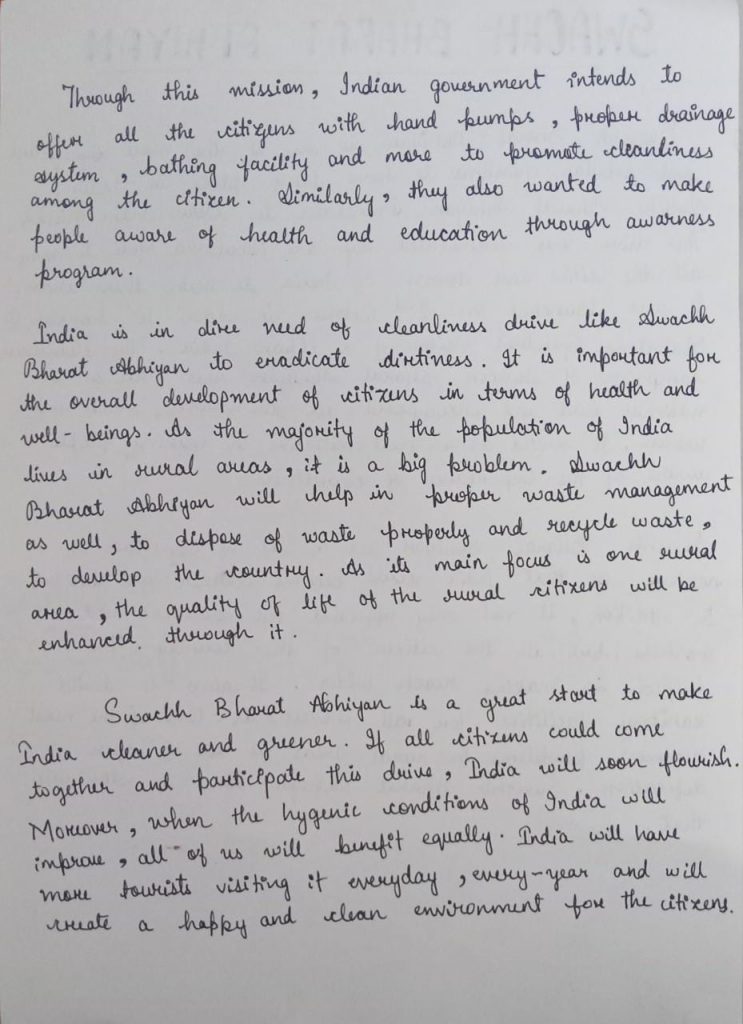 Through this mission, Indian government intends to
offer all the citizens with hand pumps, proper drainage
system, bathing facility and more to promote cleanliness
among the citizen. Similarly, they also wanted to make
people aware of health and education through awarness
program.
India is in dire need of cleanliness drive like Swachh
Bharat Abhiyan to eradicate dirtiness. It is important for
the overall development of citizens in terms of health and
well-beings. As the majority of the population of India
lives in rural areas, it is a big problem. Swachh
Bharat Abhiyan will help in proper waste management
as well, to dispose of waste properly and recycle waste,
to develop the country. As its main focus is one rural
area, the quality of life of the rural citizens will be
enhanced. through it.
Swachh Bharat Abhiyan is a great start to make
India cleaner and greener. If all citizens could come
together and participate this drive, India will soon flourish.
Moreover, when the hygenic conditions of India will
improve, all of us will benefit equally. India will have
more tourists visiting it everyday, every-year and will
create a happy and clean environment for the citizens.